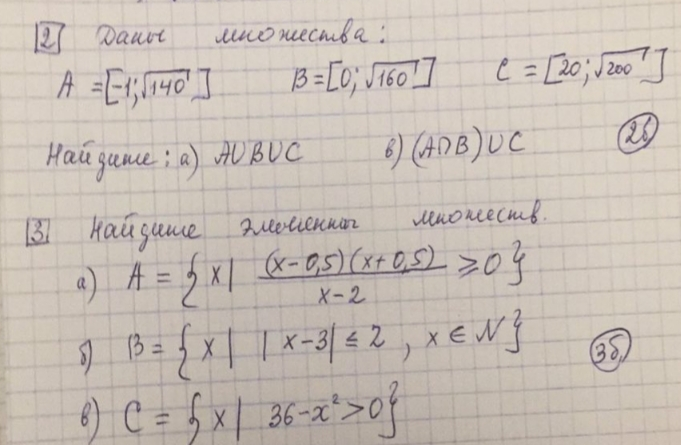 2 Даны множества:
A = [-1; √140] B = [0; √160] C = [20; √200]
Найдите: а) A∪B∪C в) (A∩B)∪C 2б
3 Найдите элементы множеств.
а) A = {x | (x-0,5)(x+0,5)/(x-2) ≥ 0}
б) B = {x | |x-3| ≤ 2, x ∈ N}
3б
в) C = {x | 36-x² > 0}